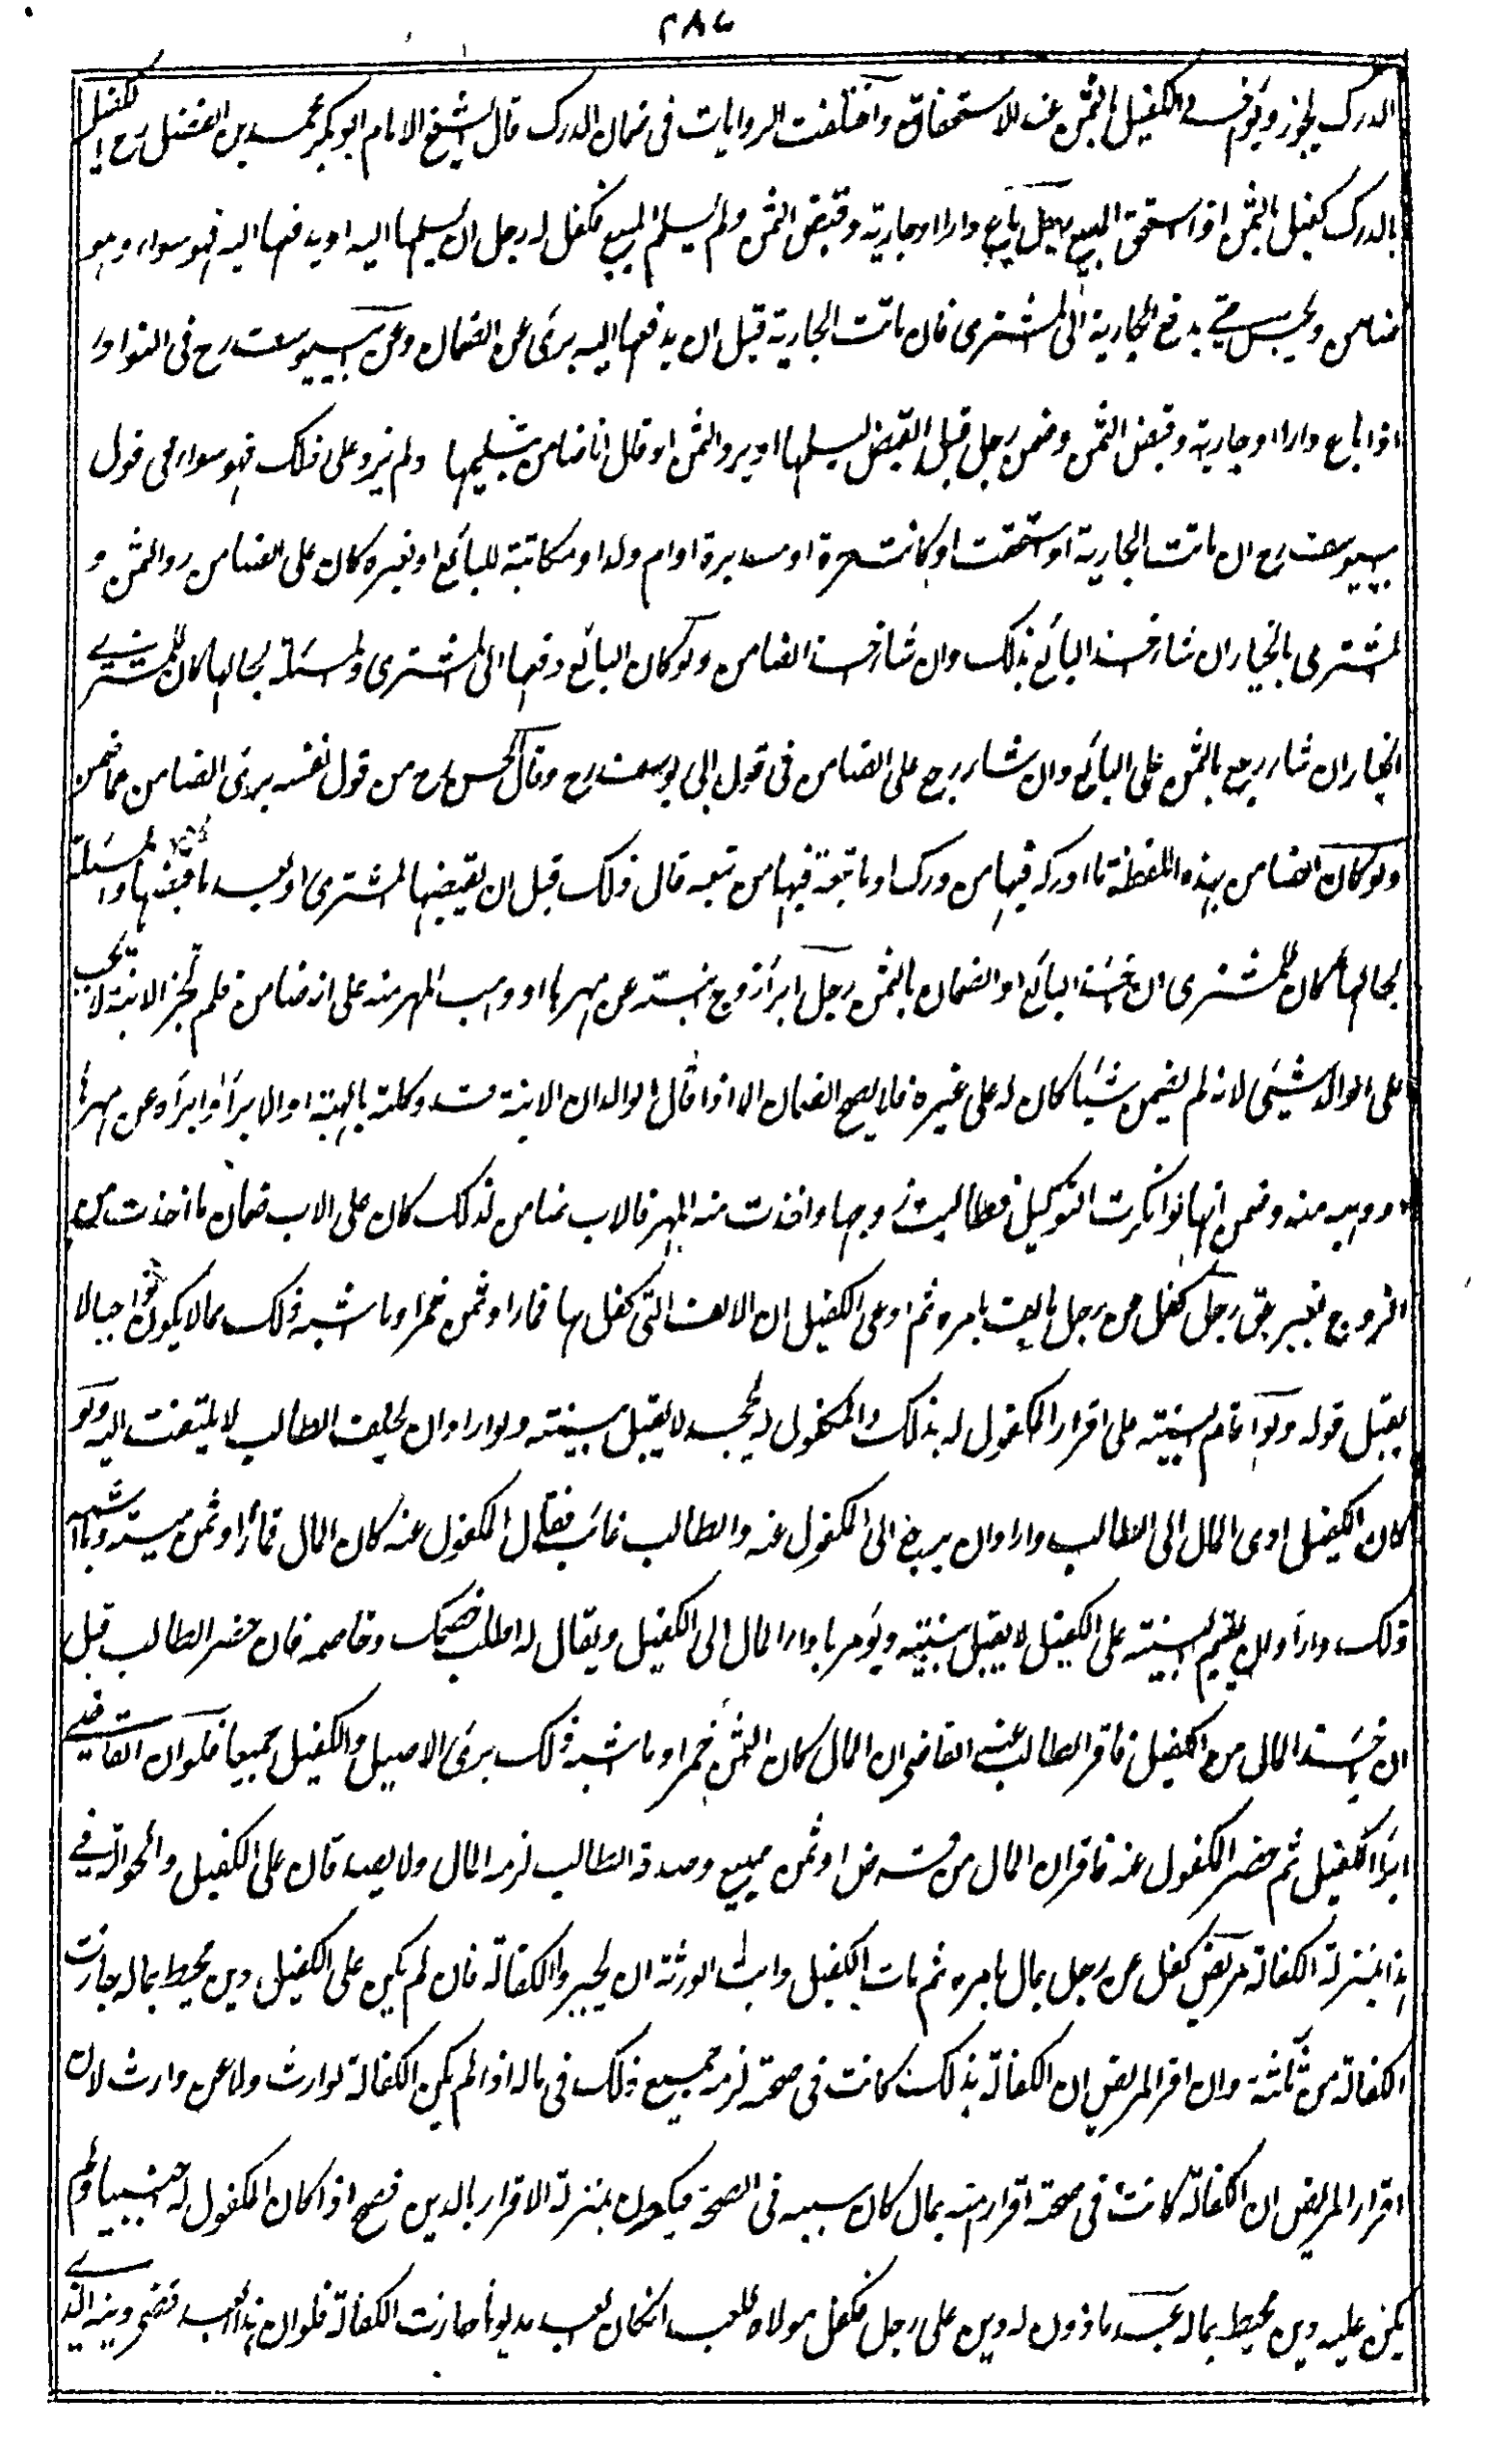 ٢٨٧
الدرك يجوز ويؤخذ الكفيل بالثمن عند الاستحقاق واختلفت الروايات في ضمان الدرك قال الشيخ الامام ابو بكر محمد بن الفضل رح الكفيل
بالدرك كفيل بالثمن اذا استحق المبيع رجل باع دارا او جارية وقبض الثمن ولم يسلم المبيع فكفل له رجل ان يسلمها اليه او يدفعها اليه فهو سواء وهو
ضامن ويحبس حتى يدفع الجارية الى المشترى فان ماتت الجارية قبل ان يدفعها اليه برئ عن الضمان وعن ابي يوسف رح في النوادر
اذا باع دارا او جارية وقبض الثمن وضمن رجل قبل القبض ليسلمها او يرد الثمن او قال انا ضامن بتسليمها ولم يزد على ذلك فهو سواء في قول
ابي يوسف رح ان ماتت الجارية او استحقت او كانت حرة او مدبرة او ام ولد او مكاتبة للبائع او لغيره كان على الضامن رد الثمن و
المشترى بالخيار ان شاء اخذ البائع بذلك وان شاء اخذ الضامن ولو كان البائع دفعها الى المشترى والمسئلة بحالها كان للمشتري
الخيار ان شاء رجع بالثمن على البائع وان شاء رجع على الضامن في قول ابي يوسف رح وقال الحسن رح من قول نفسه برئ الضامن مما ضمن
ولو كان الضامن بهذه اللفظة ما ادركه فيها من درك او ما تبعه فيها من تبعه قال ذلك قبل ان يقبضها المشترى او بعد ما قبضها والمسئلة
بحالها كان للمشترى ان ياخذ البائع او الضمان بالثمن رجل ابرأ زوج ابنته عن مهرها او وهب المهر منه على انه ضامن فلم تجز الابنة لا يجب
على الوالد شيئ لانه لم يضمن شيئا كان له على غيره فلا يصح الضمان الا اذا قال الوالد ان الابنة قد وكلته بالهبة او الابراء وابرأه عن مهرها
او وهبه منه وضمن انها اذا انكرت التوكيل فطالبت زوجها واخذت منه المهر فالاب ضامن لذلك كان على الاب ضمان ما اخذت من
الزوج بغير حق رجل كفل عن رجل بالف بامره ثم ادعى الكفيل ان الالف التي كفل بها قمار او ثمن خمر او ما اشبه ذلك مما لا يكون واجبا لا
يقبل قوله ولو اقام البينة على اقرار المكفول له بذلك والمكفول له يجحد لا يقبل بينته ولو اراد ان يحلف الطالب لا يلتفت اليه ولو
كان الكفيل ادى المال الى الطالب واراد ان يرجع الى المكفول عنه والطالب غائب فقال المكفول عنه كان المال قمارا او ثمن ميتة وما اشبه
ذلك واراد ان يقيم البينة على الكفيل لا يقبل بينته ويؤمر باداء المال الى الكفيل ويقال له اطلب خصمك وخاصمه فان حضر الطالب قبل
ان ياخذ المال من الكفيل فاقر الطالب عند القاضى ان المال كان الثمن خمر او ما اشبه ذلك برئ الاصيل والكفيل جميعا فلو ان القاضي
ابرأ الكفيل ثم حضر المكفول عنه فاقر ان المال من قرض او ثمن مبيع وصدقه الطالب لزمه المال ولا يصدقان على الكفيل والحوالة في
هذا بمنزلة الكفالة مريض كفل عن رجل بمال بامره ثم مات الكفيل وابت الورثة ان يجيزوا الكفالة فان لم يكن على الكفيل دين يحيط بماله جازت
الكفالة من ثلثه وان اقر المريض ان الكفالة بذلك كانت في صحته لزمه جميع ذلك في ماله اذا لم يكن الكفالة لوارث ولا عن وارث لان
اقرار المريض ان الكفالة كانت في صحته اقرار منه بمال كان سببه في الصحة فيكون بمنزلة الاقرار بالدين فصح اذا كان المكفول له اجنبيا ولم
يكن عليه دين يحيط بماله عبد ماذون له دين على رجل فكفل مولاه للعبد ان كان العبد مديونا جازت الكفالة فلو ان هذا العبد قضى دينه الذي